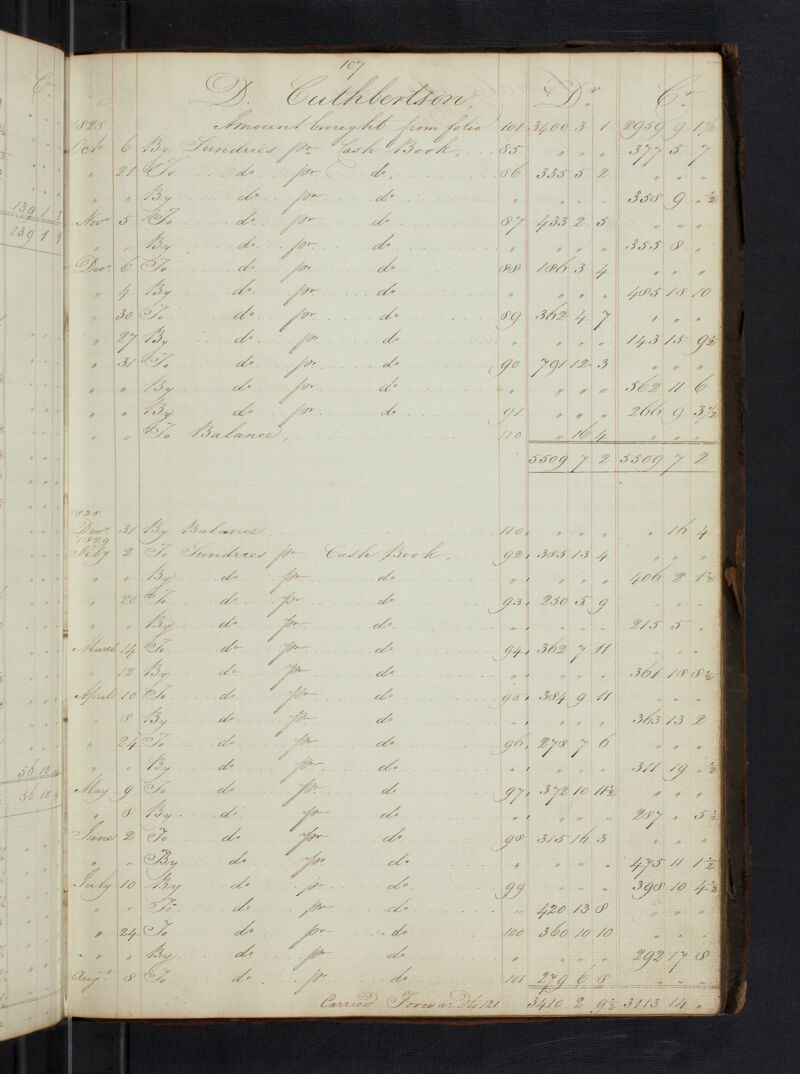 107
D. Cuthbertson, Dr Cr
1828 Amount brought from folio 101 3400 3 1 2959 9 1½
Octr 6 By Sundries pr Cash Book, 85 " " " 377 5 7
" 21 To do pr do 86 335 5 2 " " "
" " By do pr do " " " " 358 9 " ½
Novr 5 To do pr do 87 433 2 5 " " "
" " By do pr do " " " " 355 8 "
Decr 6 To do pr do 88 186 3 4 " " "
" 4 By do pr do " " " " 485 18 10
" 30 To do pr do 89 362 4 7 " " "
" 27 By do pr do " " " " 143 15 9½
" 31 To do pr do 90 791 12 3 " " "
" " By do pr do " " " " 562 11 6
" " By do pr do 91 " " " 266 9 3½
" " To Balance, 110 " 16 4 " " "
5509 7 2 5509 7 2
1828
Decr 31 By Balance, 110 " " " " 16 4
1829
Feby 2 To Sundries pr Cash Book, 92 385 13 4 " " "
" " By do pr do " " " " 406 2 1½
" 20 To do pr do 93 250 5 9 " " "
" " By do pr do " " " " 215 5 "
March 14 To do pr do 94 362 7 11 " " "
" 12 By do pr do " " " " 361 18 8½
April 10 To do pr do 95 384 9 11 " " "
" 8 By do pr do " " " " 363 13 2
" 24 To do pr do 96 278 7 6 " " "
" " By do pr do " " " " 311 19 " ½
May 9 To do pr do 97 372 10 11½ " " "
" 8 By do pr do " " " " 287 " 5½
June 2 To do pr do 98 315 16 3 " " "
" " By do pr do " " " " 475 11 1½
July 10 By do pr do 99 " " " 398 10 4½
" " To do pr do " 420 13 8 " " "
" 24 To do pr do 100 360 10 10 " " "
" " By do pr do " " " " 292 17 8
Augt 8 To do pr do 101 279 6 8 " " "
Carried Forward to 121 3410 2 9½ 3113 14 "
Cr
139 1 1
139 1 1
56 10 4
56 10 4